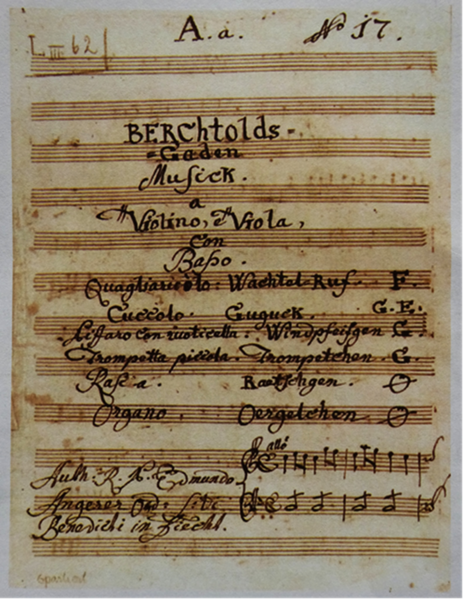 L III 62
A. a. No 17.
BERChtolds-
-Gaden
Musick.
a
Violino, è Viola,
con
Baßo.
Quagliaricolo: Wachtel-Ruf. F.
Cuccolo. Guguck. G. E.
Zifaro con ruoticella: Windpfeifgen G.
Trompetta piccola. Trompetchen. G.
Rasca. Raetschgen.
Organo. Oergelchen
allo
Auth: R. P. Edmundo
Angerer Ord: S:
Benedicti in Fiecht.